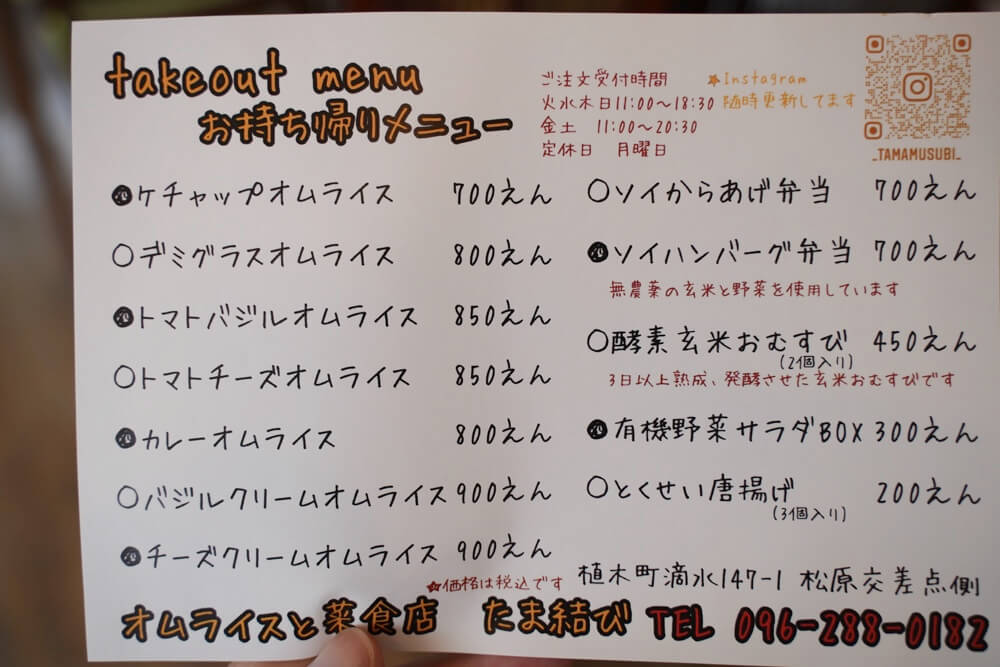 takeout menu
お持ち帰りメニュー
ご注文受付時間
火水木日11:00～18:30
金土 11:00～20:30
定休日 月曜日
★Instagram
随時更新してます
_TAMAMUSUBI_
●ケチャップオムライス 700えん
○デミグラスオムライス 800えん
●トマトバジルオムライス 850えん
○トマトチーズオムライス 850えん
●カレーオムライス 800えん
○バジルクリームオムライス 900えん
●チーズクリームオムライス 900えん
★価格は税込です
○ソイからあげ弁当 700えん
●ソイハンバーグ弁当 700えん
無農薬の玄米と野菜を使用しています
○酵素玄米おむすび 450えん
(2個入り)
3日以上熟成、発酵させた玄米おむすびです
●有機野菜サラダBOX 300えん
○とくせい唐揚げ 200えん
(3個入り)
植木町滴水147-1 松原交差点側
オムライスと薬食店 たま結び TEL 096-288-0182